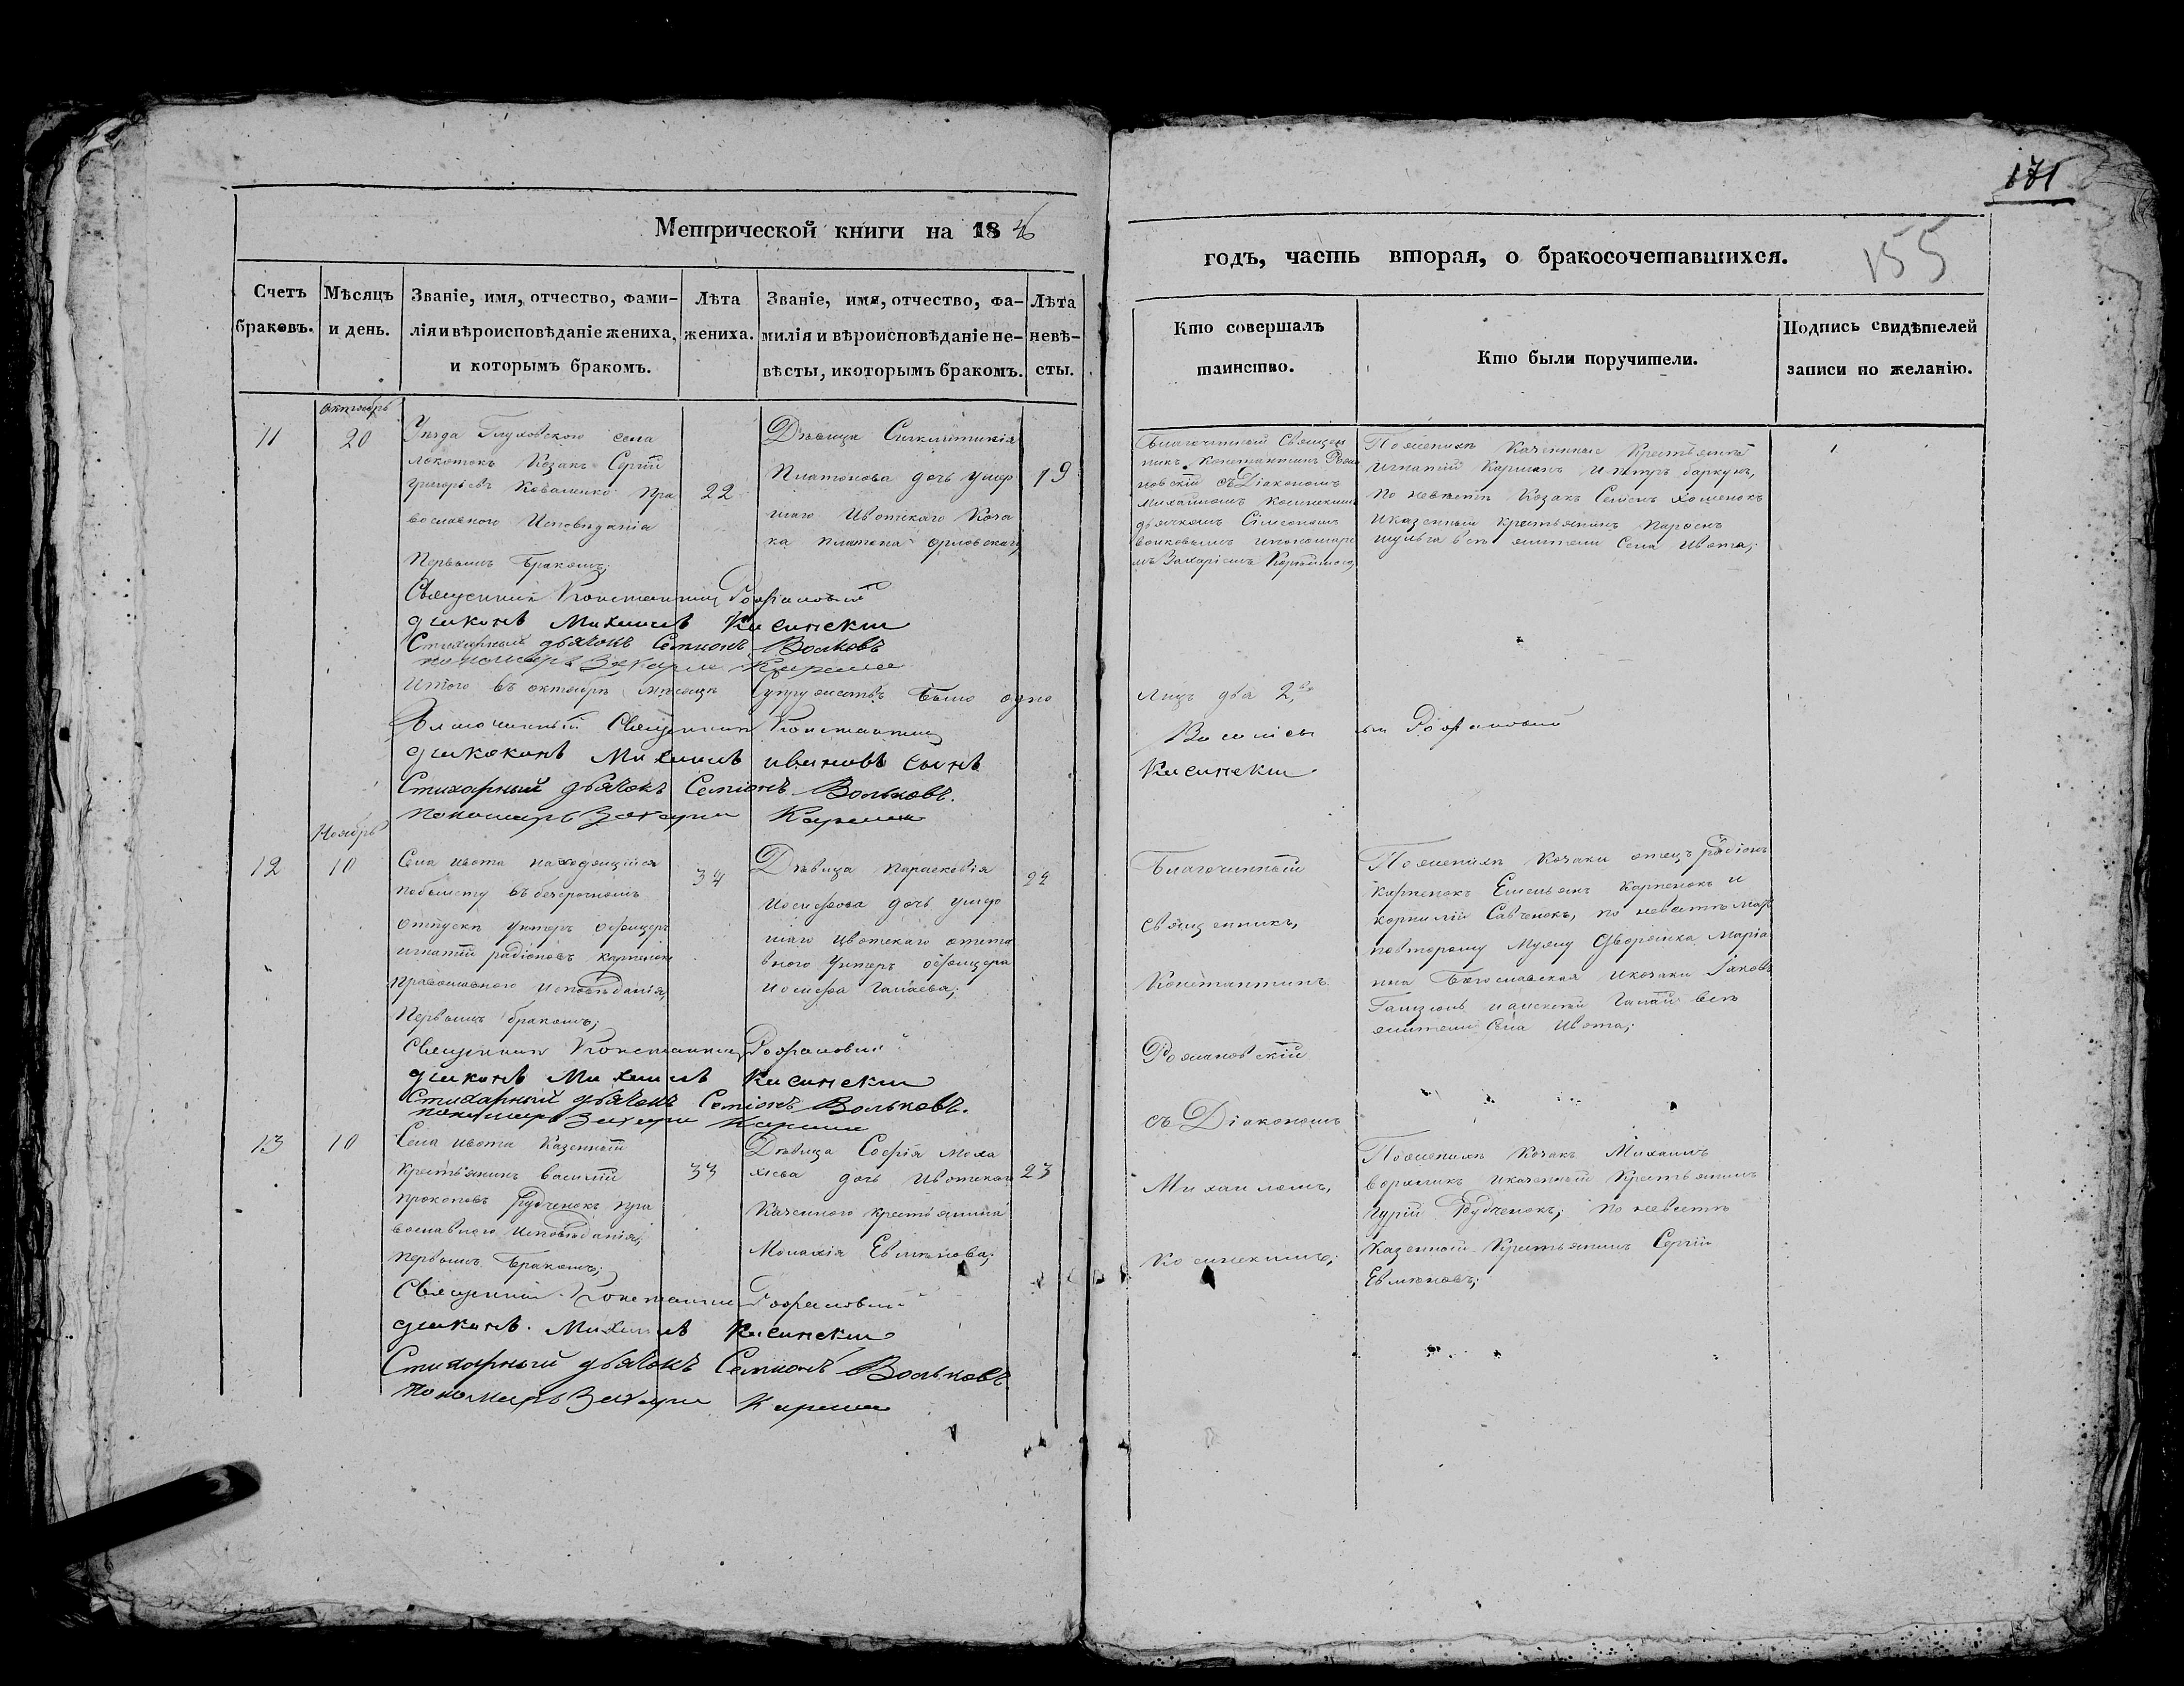 171
155
Метрической книги на 1846
годъ, часть вторая, о бракосочетавшихся.
Счетъ
браковъ.
Мѣсяцъ
и день.
Званіе, имя, отчество, фами-
лія и вѣроисповѣданіе жениха,
и которымъ бракомъ.
Лѣта
жениха.
Званіе, имя, отчество, фа-
милія и вѣроисповѣданіе не-
вѣсты, и которымъ бракомъ.
Лѣта
невѣ-
сты.
Кто совершалъ
таинство.
Кто были поручители.
Подпись свидѣтелей
записи по желанію.
Октябрь
11
20
Уезда Глуховского села
Локотокъ Козакъ Сергій
Григорьевъ Коваленко пра
вославного Исповѣданія
Первымъ бракомъ;
22
Дѣвица Синклитикія
Платонова дочь умер
шаго Ивотскаго Коза
ка Платона Орловскаго
19
Благочинный Священ
никъ Константинъ Рома
новскій съ Діакономъ
Михаиломъ Косинскимъ
дьячкомъ Симеономъ
Волковымъ и пономаре
мъ Захаріемъ
По женихѣ Казенные Крестьяне
Игнатій Карпанъ и Петръ баркунъ,
по невѣстѣ Козакъ Семенъ Хоменокъ
и казенный крестьянинъ Парфенъ
шульга всѣ жители Села Ивота;
Священникъ Константинъ Романовскій
діаконъ Михаилъ Косинскій
Стихарный дьячокъ Семионъ Волковъ
пономарь Захарій
Итого въ октябрѣ мѣсяцѣ супружествъ было одно
Лицъ два 2,
Благочинный Священникъ Константинъ
Васильевъ сынъ Романовскій
діаконъ Михаилъ ивановъ сынъ
Косинскій
Стихарный дьячокъ Семіонъ Вольковъ.
пономарь Захарій
Ноябрь
12
10
Села Ивота находящійся
по билету въ безсрочномъ
отпускѣ Унтеръ Офицеръ
игнатій радіоновъ карпенок
православного исповѣданія,
Первымъ бракомъ;
34
Дѣвица Парасковія
Іосифова дочь умер
шаго Ивотскаго отста
вного Унтеръ офицера
Іосифа Гапаева;
22
Благочинный
священникъ,
Константинъ
Романовскій
съ Діакономъ
Михаиломъ,
Косинскимъ;
По женихѣ козаки отецъ радіонъ
Карпенокъ Емельянъ Карпенокъ и
корнилій Савченокъ, по невѣстѣ мать
по второму Мужу Дворянка Маріа
нна Богославская и козаки Іаковъ
и Алексѣй Гапай всѣ
жители Села Ивота;
Священникъ Константинъ Романовскій
діаконъ Михаилъ Косинскій
Стихарный дьячокъ Семіонъ Вольковъ.
пономарь Захарій
13
10
Села Ивота Казенный
Крестьянинъ Василій
Прокоповъ Рудченокъ пра
вославного исповѣданія;
Первымъ Бракомъ;
33
Дѣвица Софія Мала
хіева дочь Ивотскаго
Казенного Крестьянина
Малахія Евменова;
23
По женихѣ Козакъ Михаилъ
и казенный Крестьянинъ
Гурій Рудченокъ; по невѣстѣ
Казенный Крестьянинъ Сергій
Евменовъ;
Священникъ Константинъ Романовскій
діаконъ Михаилъ Косинскій
Стихарный дьячокъ Семионъ Вольковъ
Пономарь Захарій